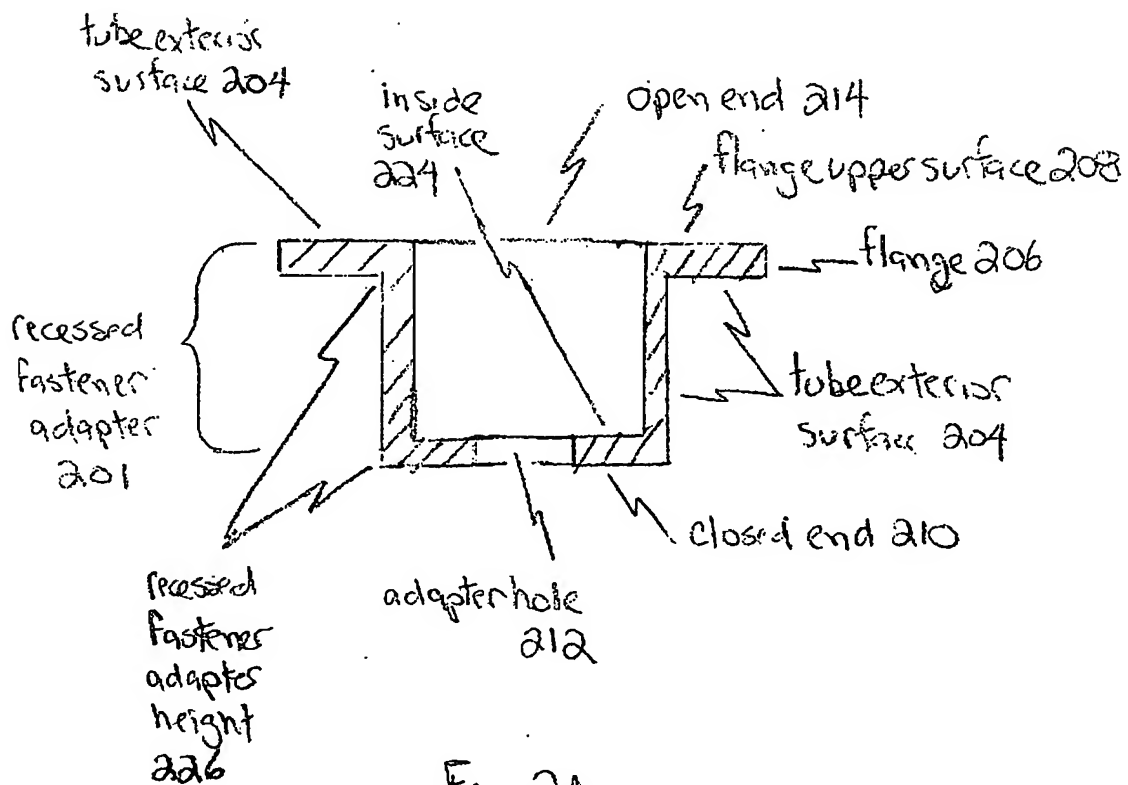 tube exterior
surface 204
inside
surface
224
open end 214
flange upper surface 208
flange 206
recessed
fastener
adapter
201
tube exterior
surface 204
closed end 210
adapter hole
212
recessed
fastener
adapter
height
226